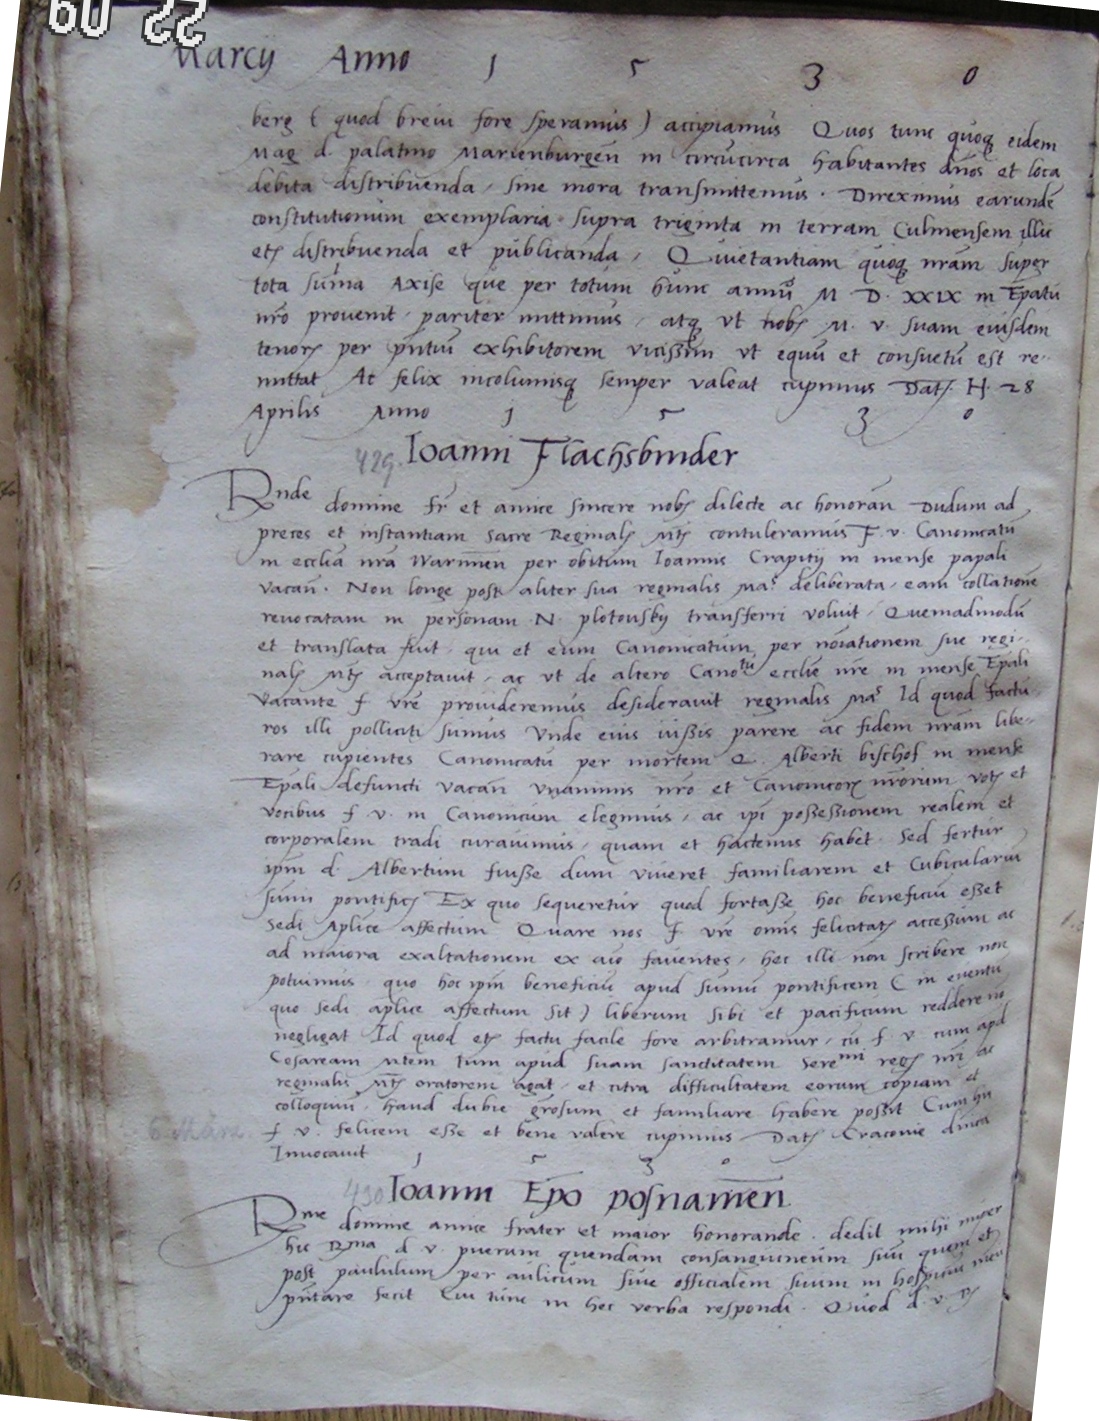 60 22
Marcij Anno 1 5 3 0
berg ( quod brevi fore speramus ) accipiamus Quos tunc quoq eidem
Mag d. palatino Marienburgen̄ in circūcirca habitantes dnōs et loca
debita distribuenda, sine mora transmittemus. Direximus earundē
constitutionum exemplaria supra triginta in terram Culmensem illic
etꝫ distribuenda et publicanda, Quietantiam quoq nrām super
tota sum̄a Axise que per totum hunc annū M D. XXIX in Ep̄atu
nrō provenit, pariter mittimus, atq ut nobꝫ M. v. suam eiusdem
tenorꝫ per pn̄tiū exhibitorem vicissim ut equū et consuetū est re-
mittat Ac felix incolumisq semper valeat cupimus Datꝫ. H. 28
Aprilis Anno 1 5 3 0
429. Ioanni Flachsbinder
Rnde domine fr̄ et amice sincere nobꝫ dilecte ac honoran̄ Dudum ad
preces et instantiam Sacre Reginalꝫ Mtꝫ contuleramus F. v. Canonicatū
in ecclīa nrā Warmien̄ per obitum Ioannis Crapitij in mense papali
vacan̄. Non longe post aliter sua reginalis Mas deliberata, eam collationē
revocatam in personam N. plotovskij transferri voluit, Quemadmodū
et translata fuit, qui et eum Canonicatum per noīationem sue regi-
nalꝫ Mtꝫ acceptavit, ac ut de altero Canotu ecclīe nrē in mense Ep̄ali
vacante f vrē provideremus desideravit reginalis Mas Id quod factu
ros illi polliciti sumus Unde eius iussis parere ac fidem nrām libe-
rare cupientes Canonicatū per mortem Q. Alberti bischof in mense
Ep̄ali defuncti vacan̄ unanimis nrō et Canonicorꝫ nrōrum votꝫ et
vocibus f v. in Canonicum elegimus, ac ipī possessionem realem et
corporalem tradi curavimus, quam et hactenus habet. Sed fertur
ipm̄ d. Albertum fuisse dum viveret familiarem et Cubicularīū
sum̄i pontificꝫ Ex quo sequeretur quod fortasse hoc beneficiū esset
Sedi Aplīce affectum Quare nos f vrē omīs felicitatꝫ accessum ac
ad maiora exaltationem ex aīo faventes, hec illi non scribere non
potuimus, quo hoc ipm̄ beneficiū apud sum̄ū pontificem ( in eventū
quo sedi aplīce affectum sit ) liberum sibi et pacificum reddere nō
negligat Id quod etꝫ factu facile fore arbitramur, cū f v cum apd
Cesaream Mtem tum apud suam sanctitatem Serenmi regꝫ nrī ac
reginalis Mtꝫ oratorem agat, et citra difficultatem eorum copiam et
colloquiū, haud dubie grōsum et familiare habere possit Cum hīj
f v. felicem esse et bene valere cupimus Datꝫ Cracovie dnīca
6 März
Invocavit 1 5 3 0
430 Ioanni Epō posnamēn
Rme domine amice frater et maior honorande. dedit mihi
hic Rma d v. puerum quendam consanguineum suū quem et
post paululum per aulicum sive officialem suum in hospitiū meū
pn̄tare fecit Cui tunc in hec verba respondi. Quod d. v. Rꝫ